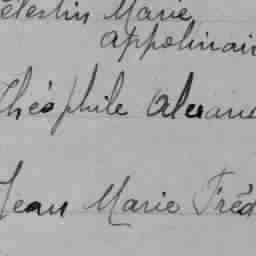 élestin Marie
Appolinair
Théophile Alexan
Jean Marie Fréd